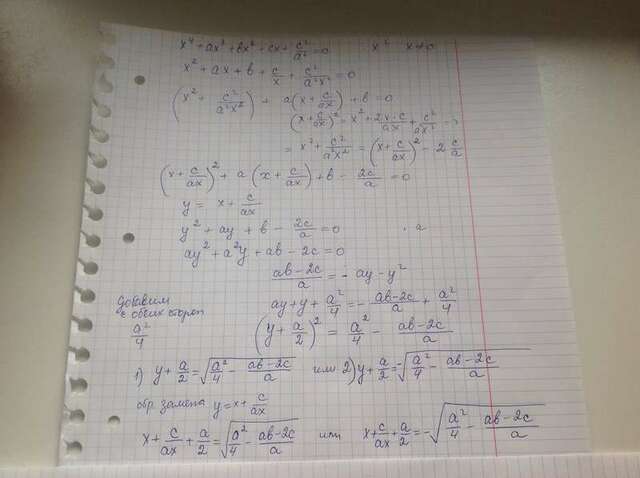 x⁴ + ax³ + bx² + cx + c²/a² = 0 x² x≠0
x² + ax + b + c/x + c²/(a²x²) = 0
(x² + c²/(a²x²)) + a(x + c/(ax)) + b = 0
(x + c/(ax))² = x² + 2x·c/(ax) + c²/(ax²) =>
= x² + c²/(a²x²) = (x + c/(ax))² - 2 c/a
(x + c/(ax))² + a(x + c/(ax)) + b - 2c/a = 0
y = x + c/(ax)
y² + ay + b - 2c/a = 0 · a
ay² + a²y + ab - 2c = 0
(ab - 2c)/a = - ay - y²
добавим с обеих сторон a²/4
ay + y + a²/4 = - (ab - 2c)/a + a²/4
(y + a/2)² = a²/4 - (ab - 2c)/a
1) y + a/2 = √(a²/4 - (ab - 2c)/a) или 2) y + a/2 = -√(a²/4 - (ab - 2c)/a)
обр замена y = x + c/(ax)
x + c/(ax) + a/2 = √(a²/4 - (ab - 2c)/a) или x + c/(ax) + a/2 = -√(a²/4 - (ab - 2c)/a)